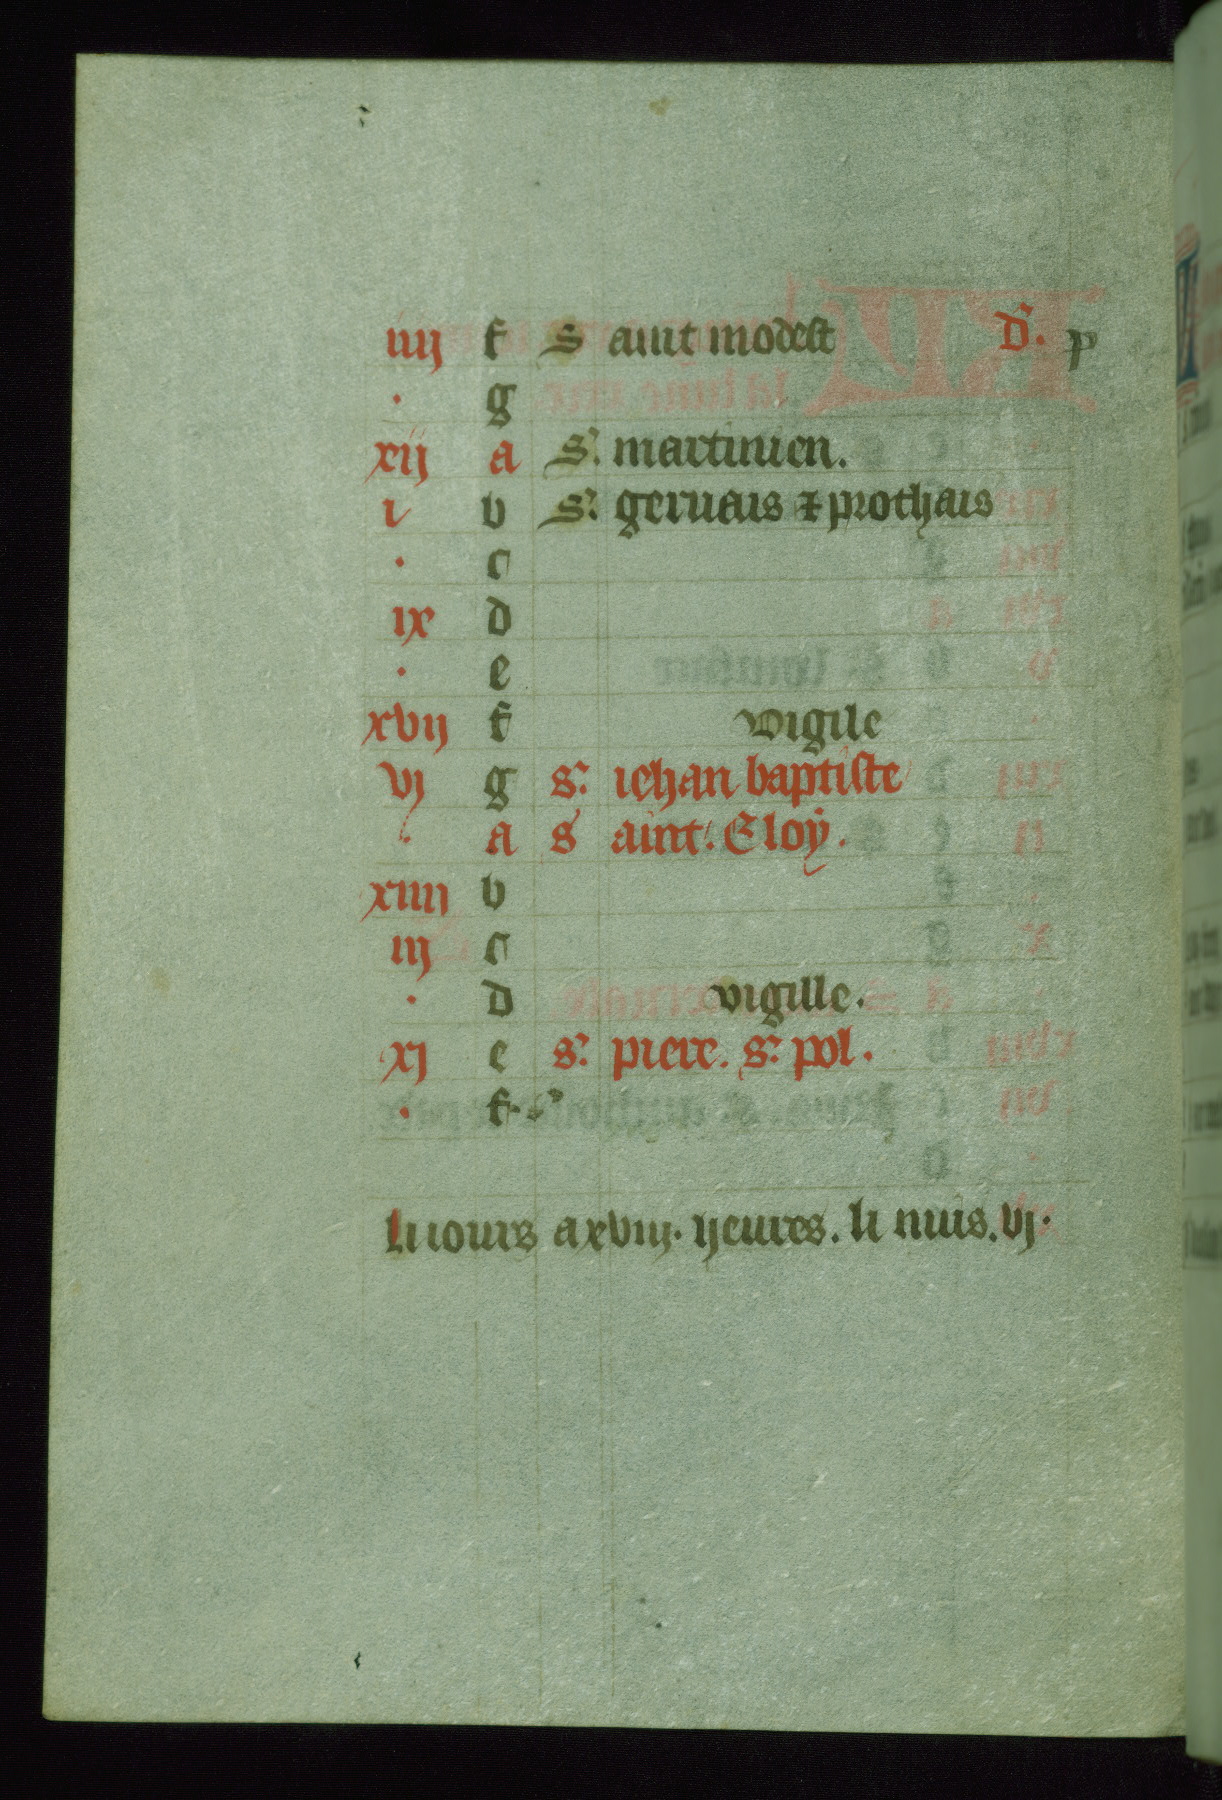 iiij f S aint modest D. p
. g
xij a S. martinien.
i b S. geruais ⁊ prothais
. c
ix d
. e
xvij f vigile
vj g S. iehan baptiste
. a S aint. Eloy.
xiiij b
iij c
. d vigille.
xj e S. piere. S. pol.
. f.
li iours a xviij. heures. li nuis. vj.